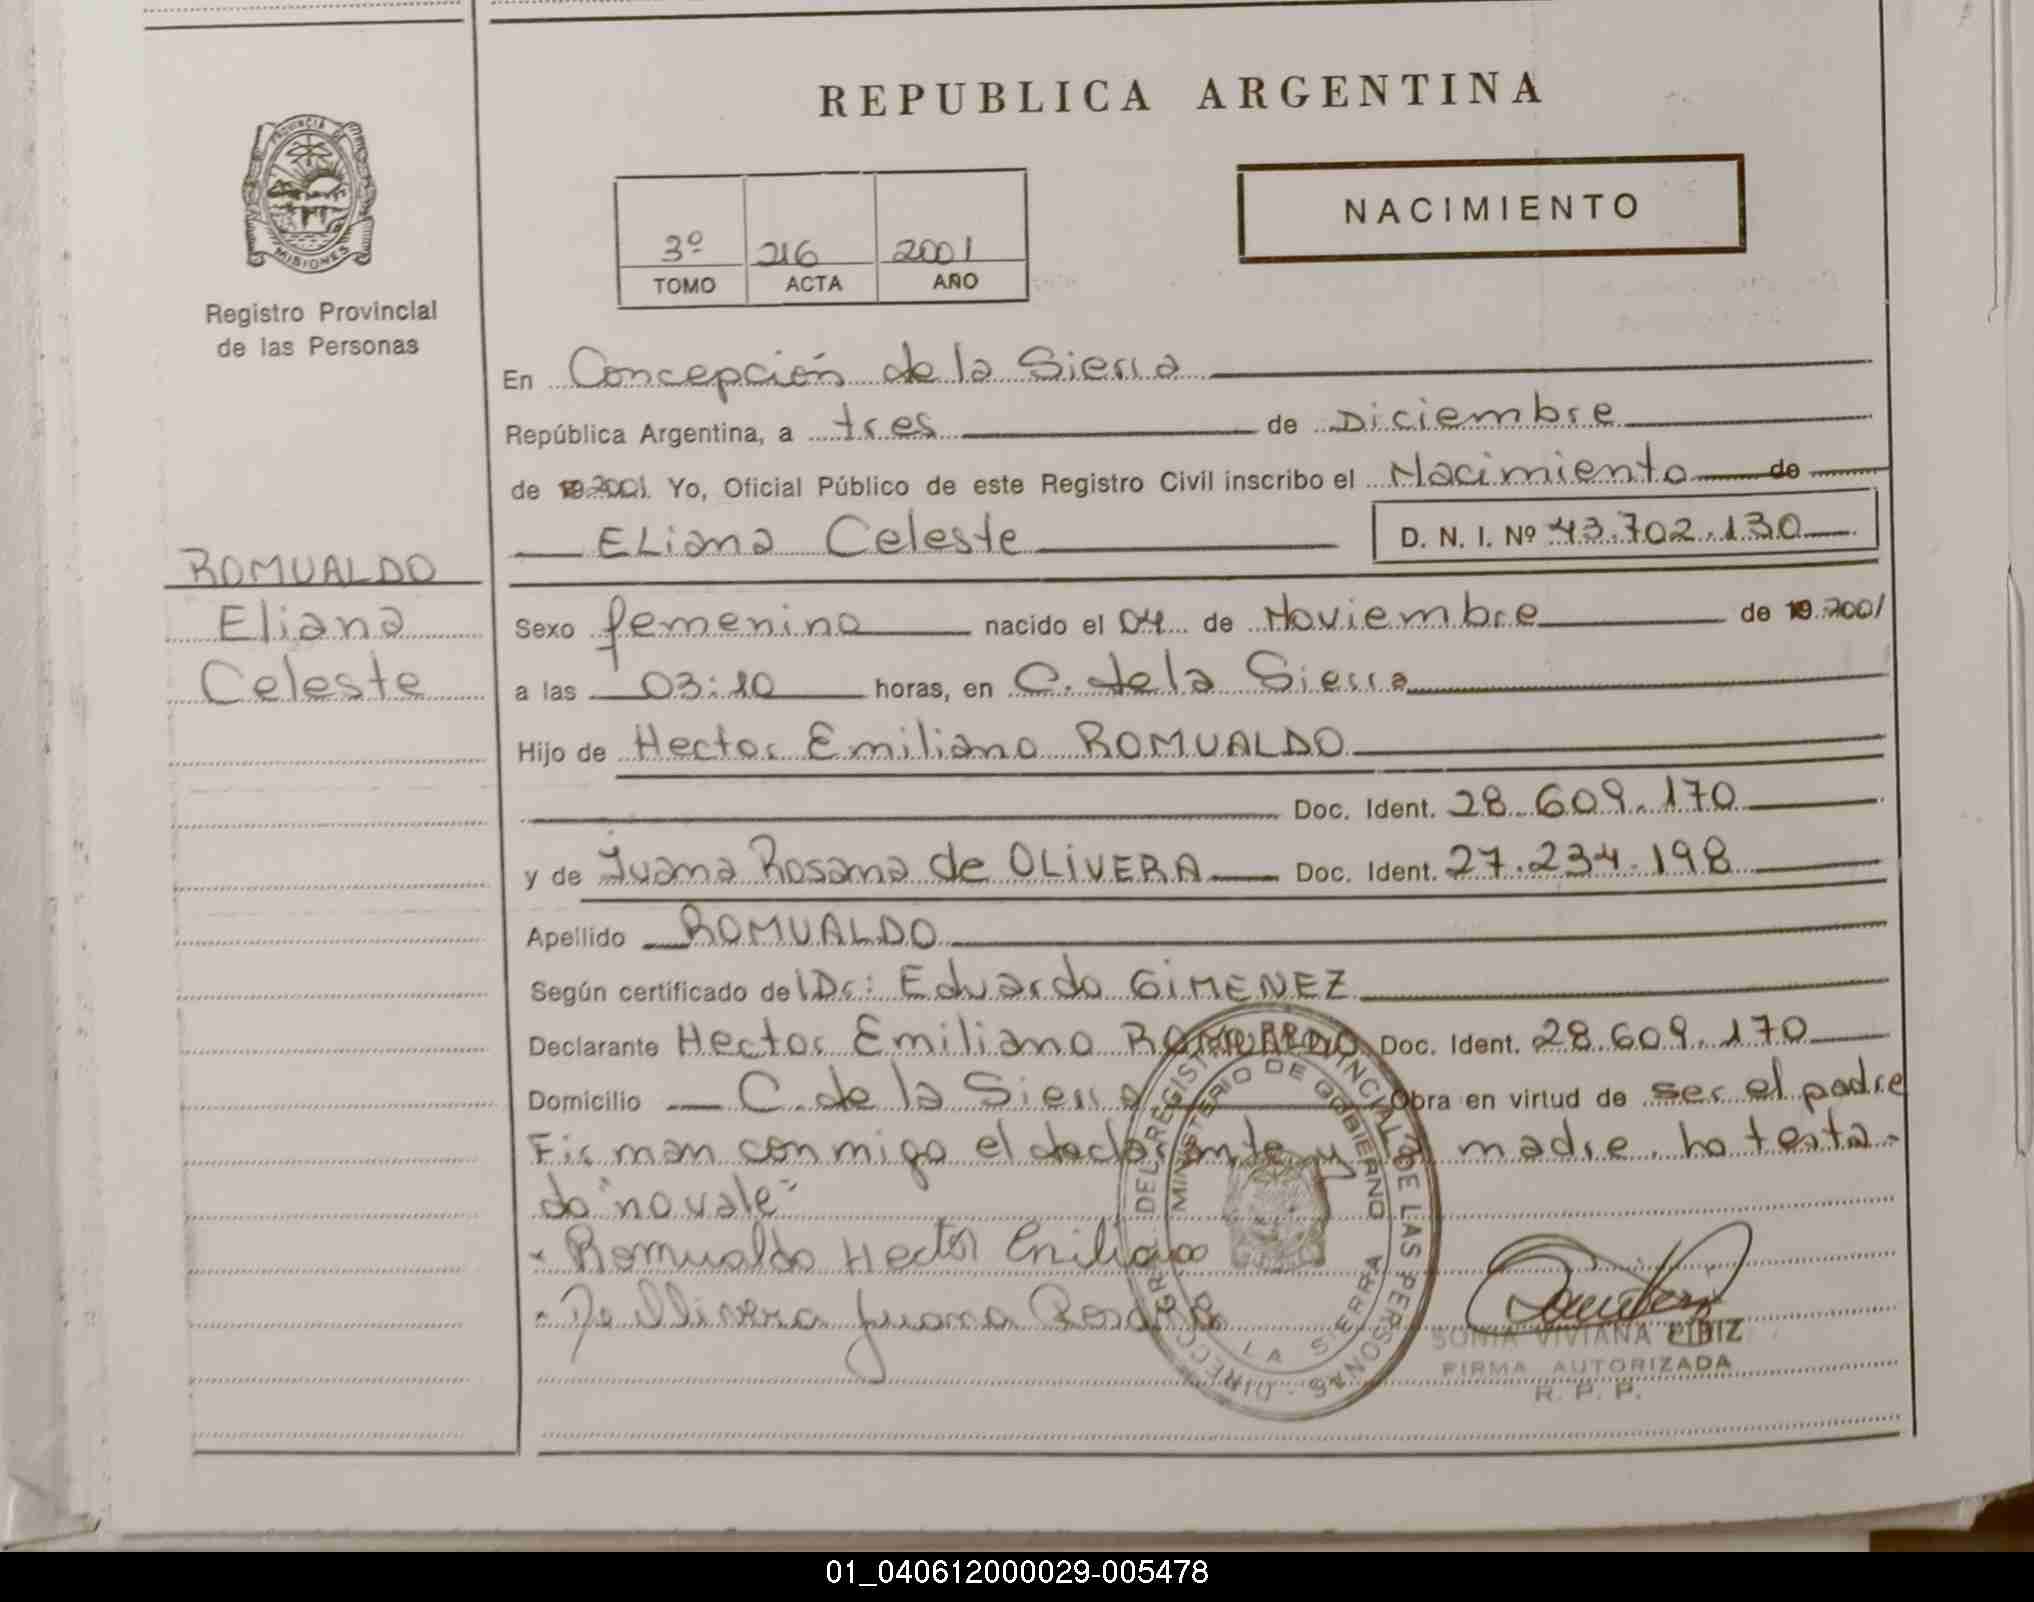 REPUBLICA ARGENTINA
PROVINCIA DE MISIONES
Registro Provincial
de las Personas
3º 216 2001
TOMO ACTA AÑO
NACIMIENTO
En Concepción de la Sierra
República Argentina, a tres de Diciembre
de 192001. Yo, Oficial Público de este Registro Civil inscribo el Nacimiento de
Eliana Celeste D. N. I. Nº 43.702.130
ROMUALDO
Eliana
Celeste
Sexo femenino nacido el 04 de Noviembre de 192001
a las 03:10 horas, en C. de la Sierra
Hijo de Hector Emiliano ROMUALDO
Doc. Ident. 28.609.170
y de Juana Rosana de OLIVERA Doc. Ident. 27.234.198
Apellido ROMUALDO
Según certificado del Dr: Eduardo GIMENEZ
Declarante Hector Emiliano ROMUALDO Doc. Ident. 28.609.170
Domicilio C. de la Sierra Obra en virtud de ser el padre
Firman conmigo el declarante y la madre. lo testa-
do "no vale"
- Romualdo Hector Emiliano
- De Olivera Juana Rosana
DIRECC. GRAL. DEL REGIST. PROVINCIAL DE LAS PERSONAS
MINISTERIO DE GOBIERNO
DE LA SIERRA
SONIA VIVIANA
FIRMA AUTORIZADA
R. P. P.
01_040612000029-005478